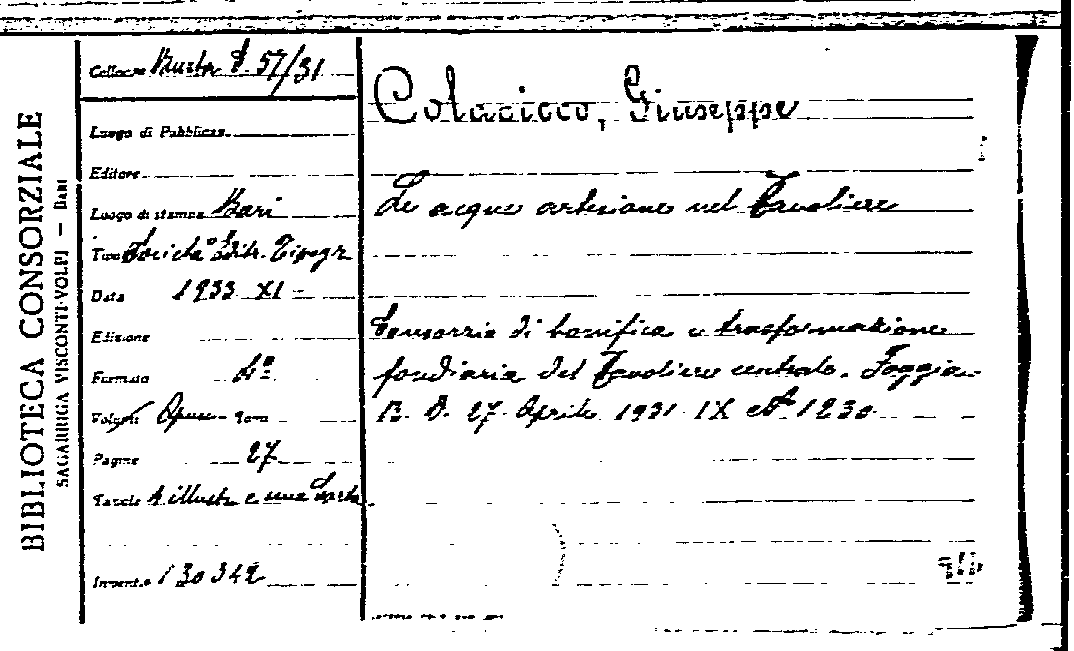 BIBLIOTECA CONSORZIALE
SAGARRIGA VISCONTI-VOLPI — BARI
Collocaz. Busta D. 57/31
Luogo di Pubblicaz.
Editore
Luogo di stampa Bari
Tip. Società Editr. Tipogr.
Data 1933 XI
Edizione
Formato 4º
Volumi Opusc.
Pagine 27
Tavole 4 illustr e una carta.
Invent. 130342
Colacicco, Giuseppe
Le acque artesiane nel Tavoliere
Consorzio di bonifica e trasformazione
fondiaria del Tavoliere centrale. Foggia
R. D. 27 Aprile 1931 IX nº 1230